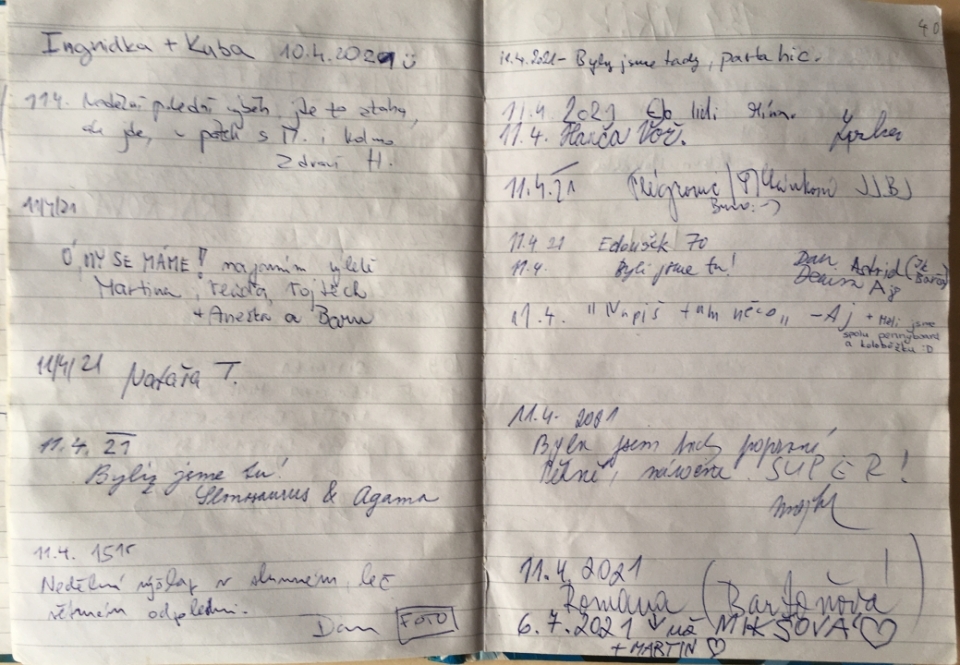 Ingridka + Kuba 10.4.2021
11.4. Nedělní polední výběh, jde to ztuha,
ale jde, v potu s M. i kolmo
Zdraví H.
11/4/21
Ó, MY SE MÁME! na jarním výletě
Martina, Vojtěch
+ Anežka a Bára
11/4/21 Natáša T.
11.4. 21
Byly jsme tu!
& Agama
11.4. 1515
Nedělní výšlap v slunném, leč
větrném odpoledni.
Dan FOTO
40
11.4.2021 - Byly jsme tady, parta hic.
11.4 2021 lidi
11.4. Hanča Voř.
11.4.21 JJBJ
11.4 21 Edoušek 70
11.4. Byli jsme tu! Dan. Astrid
Denisa Aj
11.4. "Napiš tam něco" - Aj + Měli jsme
spolu pennyboard
a koloběžku :D
11.4. 2021
Byla jsem tady poprvé
Pěkné, náročné. SUPER!
11.4. 2021
Romana (Bartoňová!)
6.7.2021 už MIKŠOVÁ ♡
+ MARTIN ♡